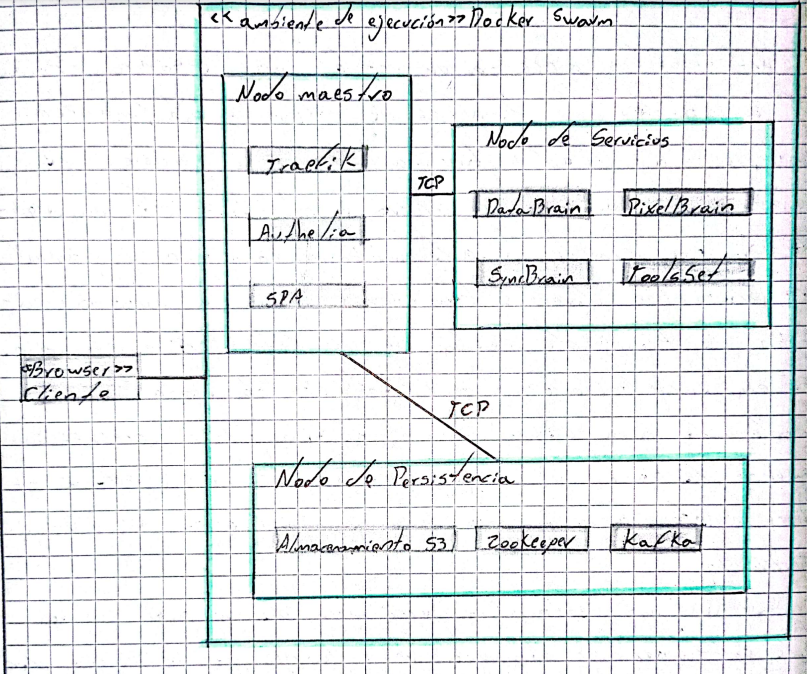 <<ambiente de ejecución>> Docker Swarm
Nodo maestro
Traefik
Authelia
SPA
TCP
Nodo de Servicios
DataBrain
PixelBrain
SyncBrain
ToolsSet
<<Browser>>
Cliente
TCP
Nodo de Persistencia
Almacenamiento S3
Zookeeper
Kafka